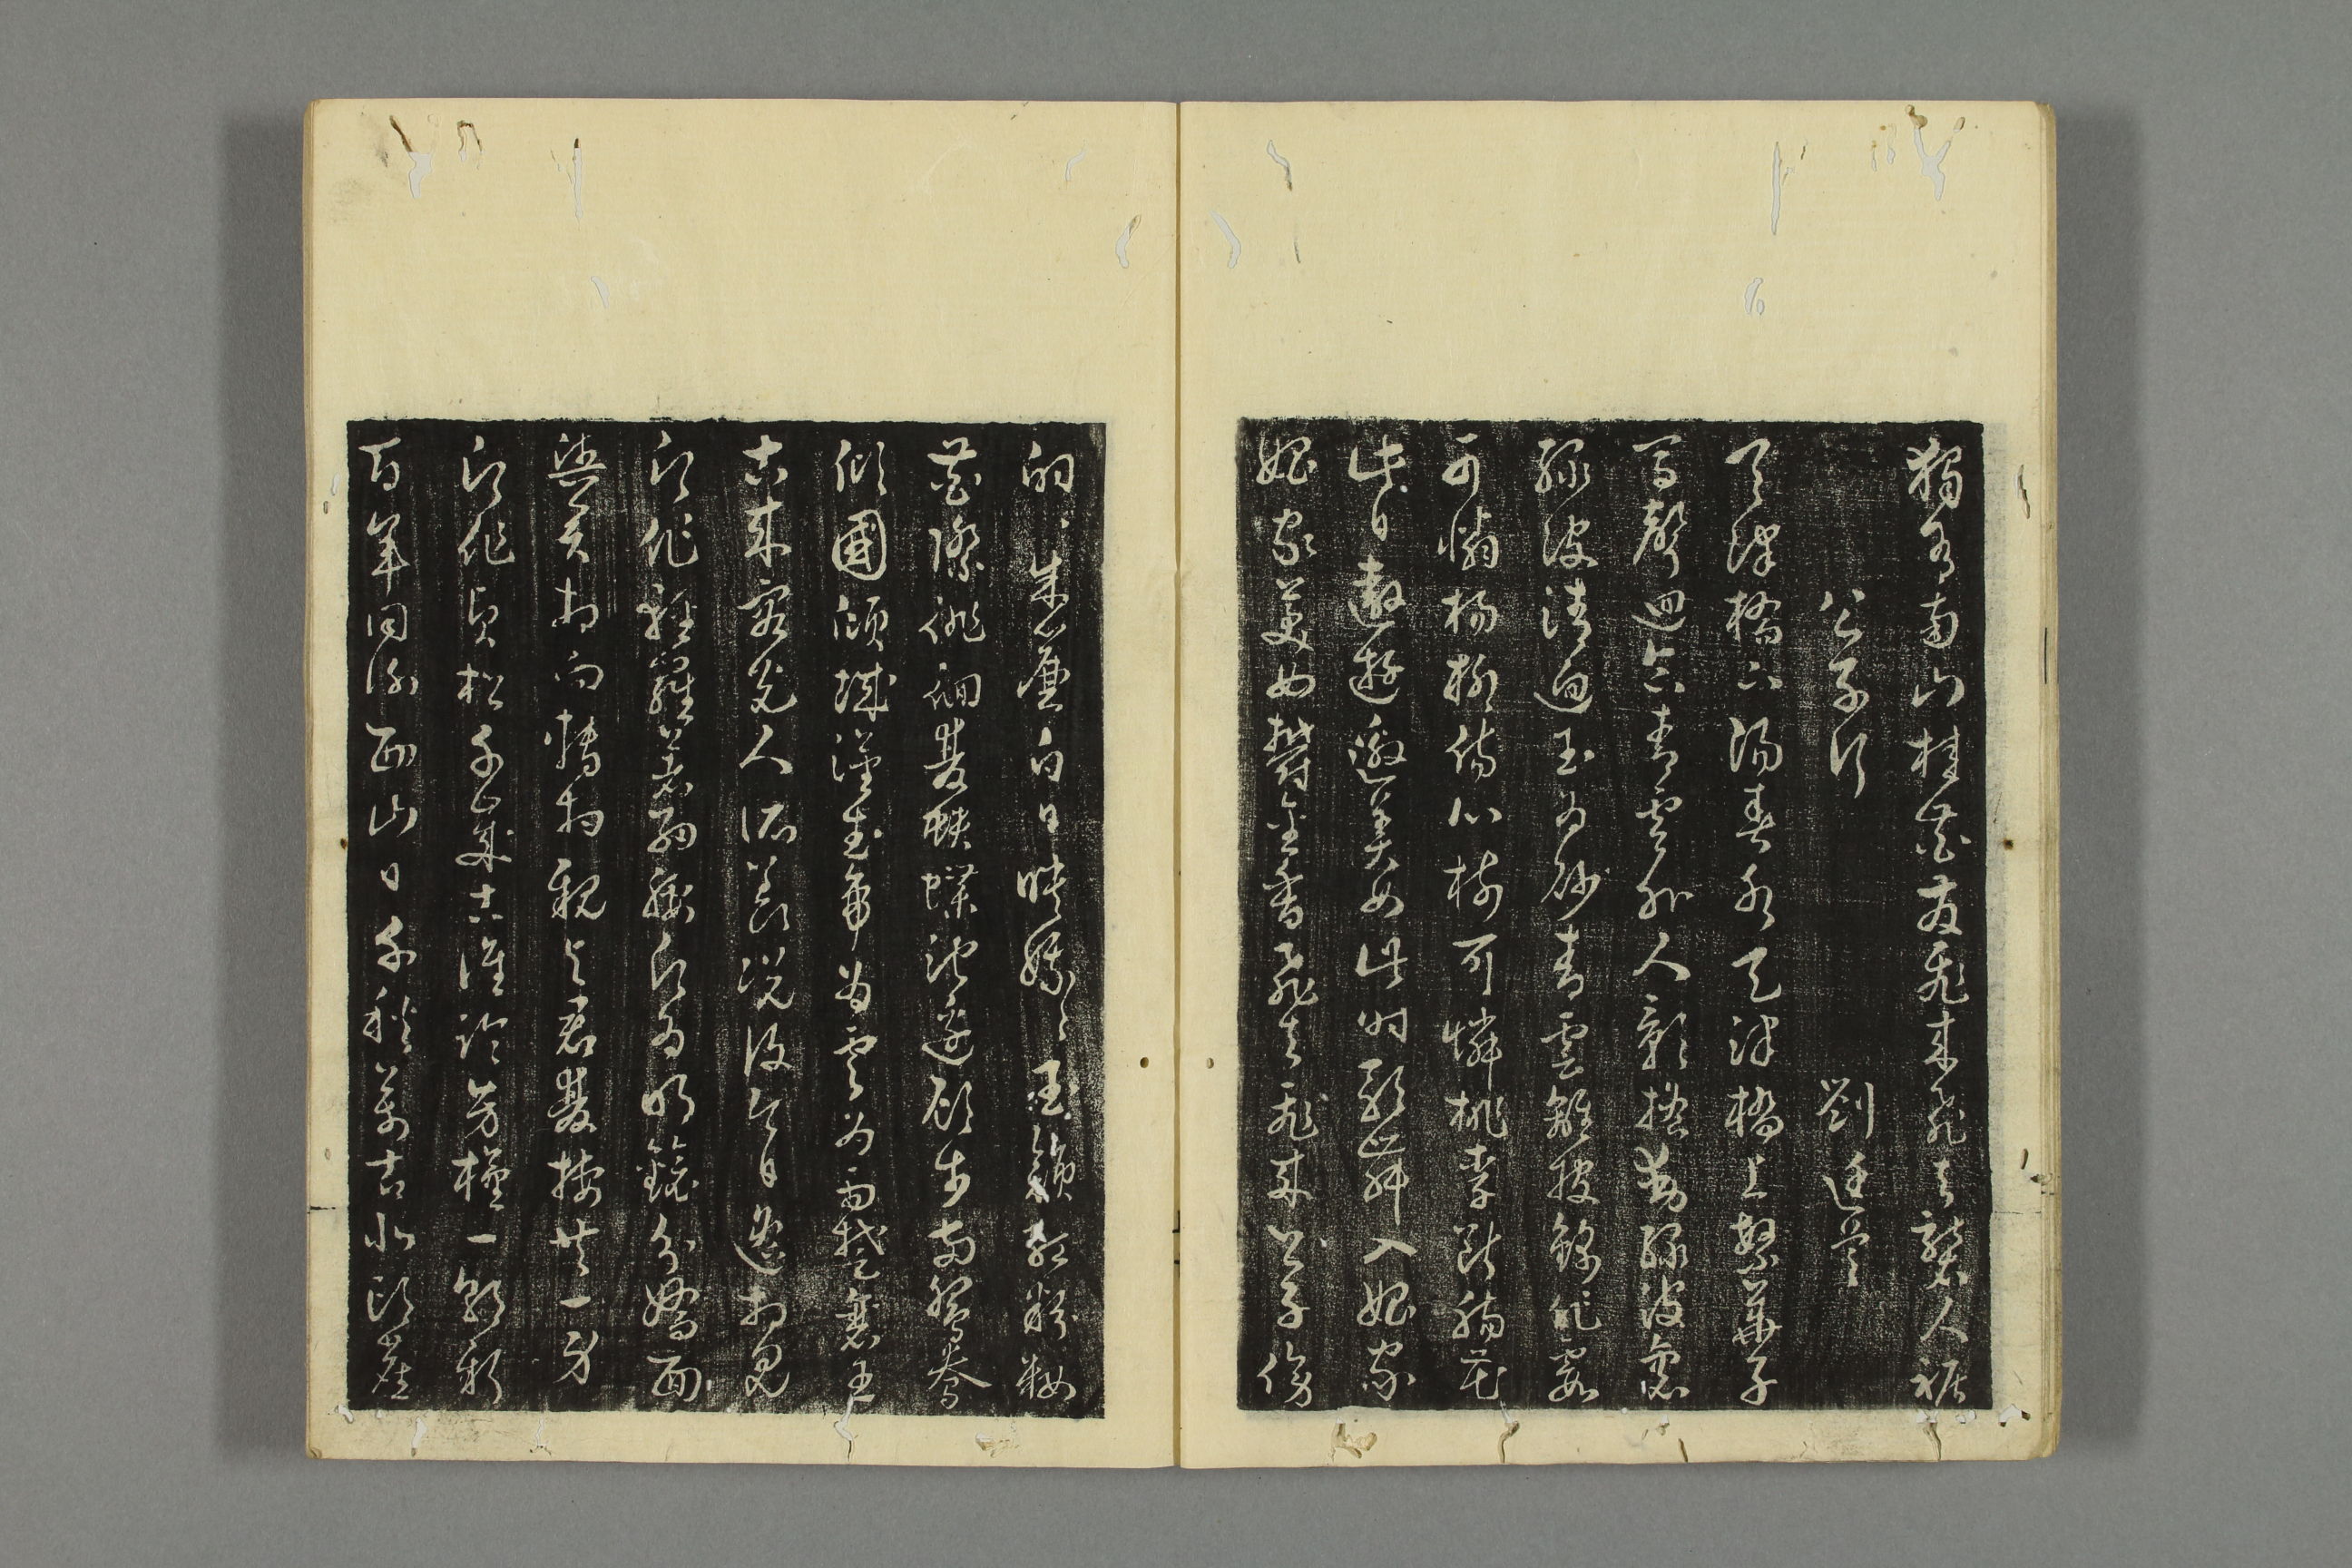 獨有南山桂花發飛來飛去襲人裾
公子行　劉廷芝
天津橋下陽春水天津橋上繁華子
馬聲迴合青雲外人影搖動綠波裏
綠波清迥玉為砂青雲離披錦作霞
可憐楊柳傷心樹可憐桃李斷腸花
此日遨遊邀美女此時歌舞入娼家
娼家美女鬱金香飛去飛來公子傍
的〻朱簾白日映娥〻玉顏紅粉粧
花際徘徊雙蛺蝶池邊顧步兩鴛鴦
傾國傾城漢武帝為雲為雨楚襄王
古來容光人所羨況復今日遙相見
願作輕羅著細腰願為明鏡分嬌面
與君相向轉相親與君雙棲共一身
願作貞松千歲古誰論芳槿一朝新
百年同謝西山日千秋萬古北邙塵